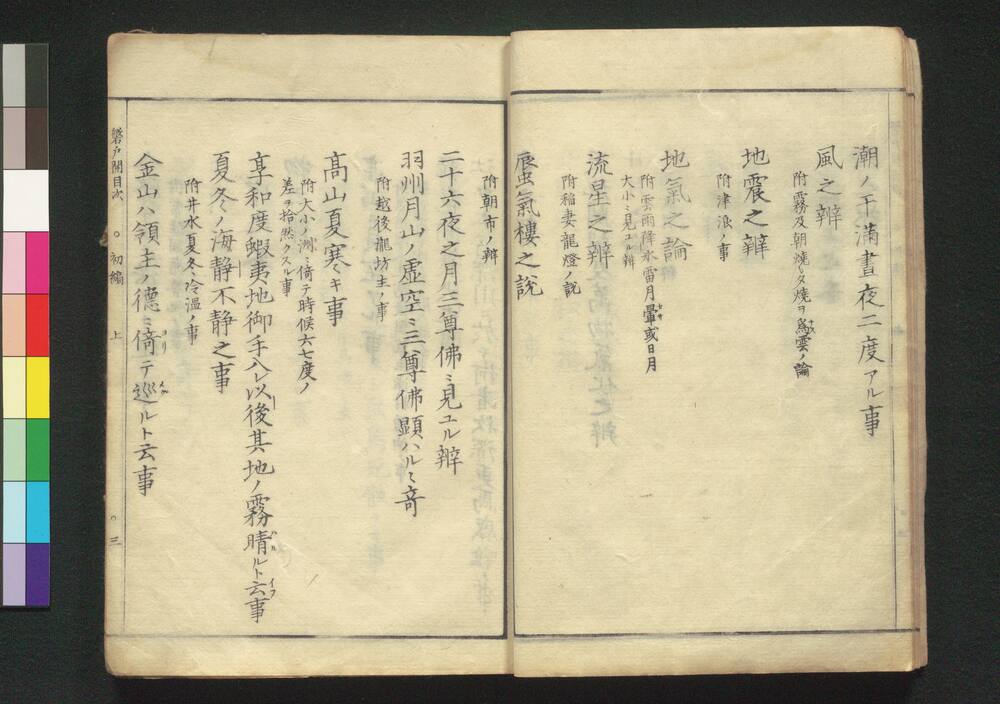 潮ノ干満晝夜二度アル事
風之辨
附霧及朝燒夕燒ヲ為雲ノ論
地震之辨
附津浪ノ事
地氣之論
附雲雨降氷雷月暈或日月
大小ミ見ユル辨
流星之辨
附稲妻龍燈ノ説
蜃氣樓之説
附朝市ノ辨
二十六夜之月三尊佛ミ見ユル辨
羽州月山ノ虚空ミ三尊佛顕ハルヽ奇
附越後瀧坊主ノ事
高山夏寒キ事
附大小ノ洲ミ倚テ時候六七度ノ
差ヲ拾然タスル事
享和度蝦夷地御手入レ以後其地ノ霧晴ルト云事
夏冬ノ海静不静之事
附井水夏冬冷温ノ事
金山ハ領主ノ德ミ倚テ巡ルト云事
磐戸開目次 ○初編 上 ○三